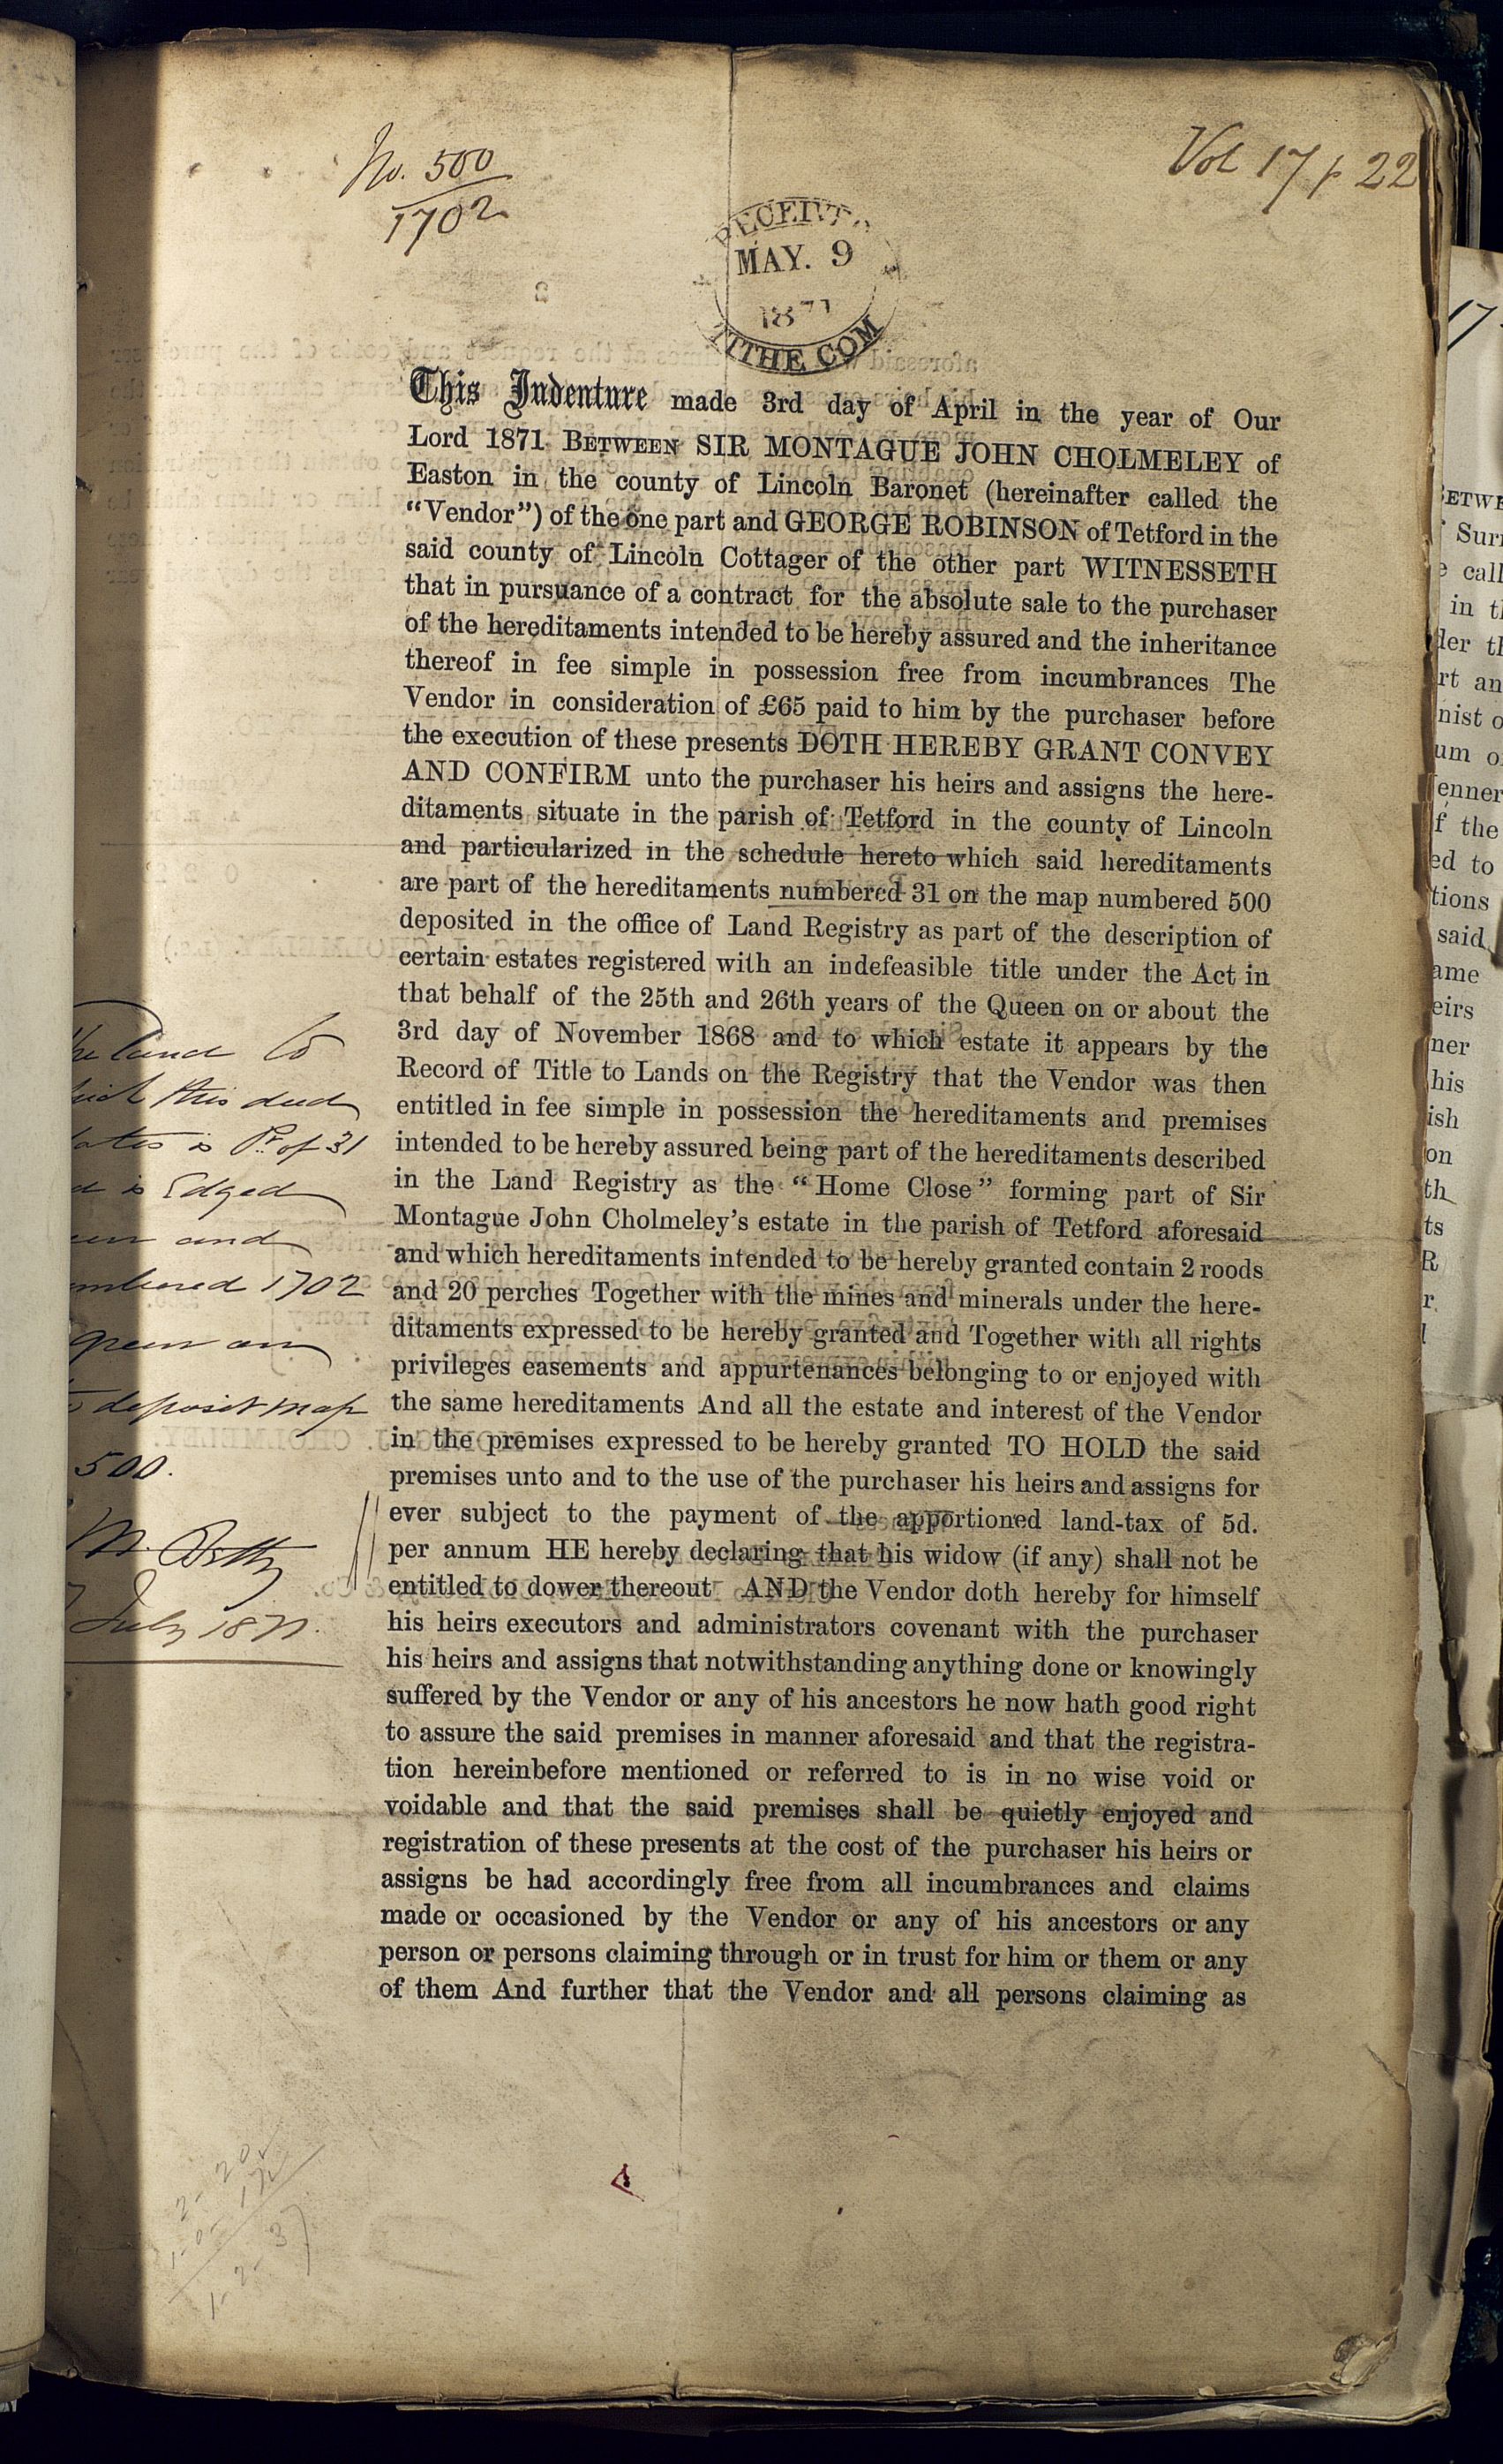 No. 500
1702
Vol 17 p 22
MAY. 9
1871
TITHE COM
This Indenture made 3rd day of April in the year of Our
Lord 1871 BETWEEN SIR MONTAGUE JOHN CHOLMELEY of
Easton in the county of Lincoln Baronet (hereinafter called the
“Vendor”) of the one part and GEORGE ROBINSON of Tetford in the
said county of Lincoln Cottager of the other part WITNESSETH
that in pursuance of a contract for the absolute sale to the purchaser
of the hereditaments intended to be hereby assured and the inheritance
thereof in fee simple in possession free from incumbrances The
Vendor in consideration of £65 paid to him by the purchaser before
the execution of these presents DOTH HEREBY GRANT CONVEY
AND CONFIRM unto the purchaser his heirs and assigns the here-
ditaments situate in the parish of Tetford in the county of Lincoln
and particularized in the schedule hereto which said hereditaments
are part of the hereditaments numbered 31 on the map numbered 500
deposited in the office of Land Registry as part of the description of
certain estates registered with an indefeasible title under the Act in
that behalf of the 25th and 26th years of the Queen on or about the
3rd day of November 1868 and to which estate it appears by the
Record of Title to Lands on the Registry that the Vendor was then
entitled in fee simple in possession the hereditaments and premises
intended to be hereby assured being part of the hereditaments described
in the Land Registry as the “Home Close” forming part of Sir
Montague John Cholmeley’s estate in the parish of Tetford aforesaid
and which hereditaments intended to be hereby granted contain 2 roods
and 20 perches Together with the mines and minerals under the here-
ditaments expressed to be hereby granted and Together with all rights
privileges easements and appurtenances belonging to or enjoyed with
the same hereditaments And all the estate and interest of the Vendor
in the premises expressed to be hereby granted TO HOLD the said
premises unto and to the use of the purchaser his heirs and assigns for
ever subject to the payment of the apportioned land-tax of 5d.
per annum HE hereby declaring that his widow (if any) shall not be
entitled to dower thereout AND the Vendor doth hereby for himself
his heirs executors and administrators covenant with the purchaser
his heirs and assigns that notwithstanding anything done or knowingly
suffered by the Vendor or any of his ancestors he now hath good right
to assure the said premises in manner aforesaid and that the registra-
tion hereinbefore mentioned or referred to is in no wise void or
voidable and that the said premises shall be quietly enjoyed and
registration of these presents at the cost of the purchaser his heirs or
assigns be had accordingly free from all incumbrances and claims
made or occasioned by the Vendor or any of his ancestors or any
person or persons claiming through or in trust for him or them or any
of them And further that the Vendor and all persons claiming as
land to
this deed
is Pt. of 31
is Edged
and
1702
green on
deposit map
500.
July 1871.